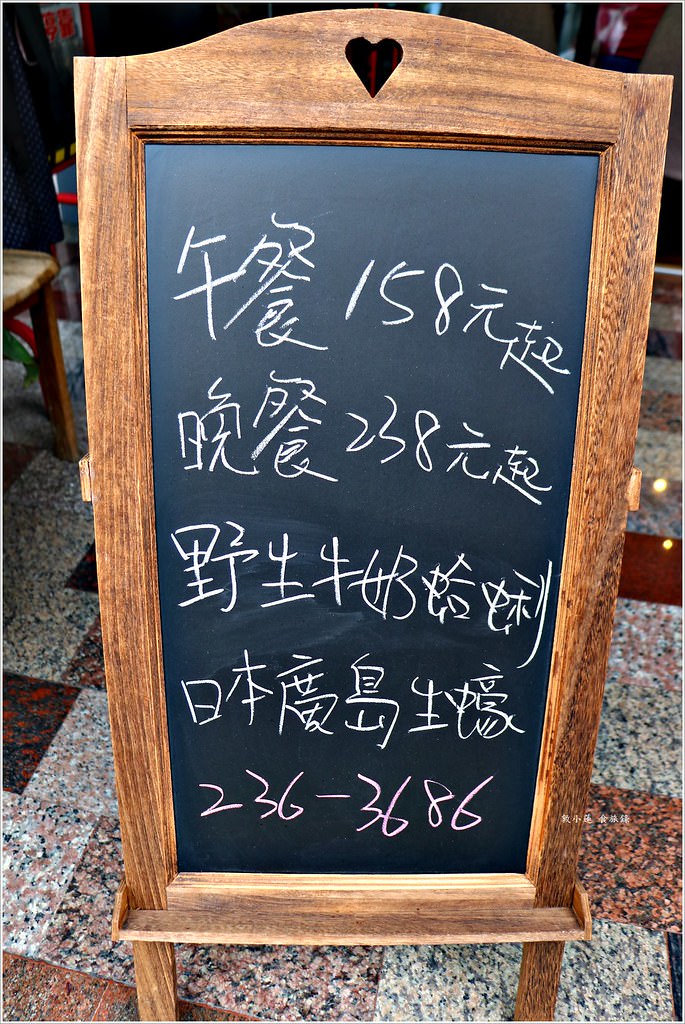 午餐 158元起
晚餐 238元起
野生牛奶蛤蜊
日本廣島生蠔
236-3686
敦小蓮 食旅錄